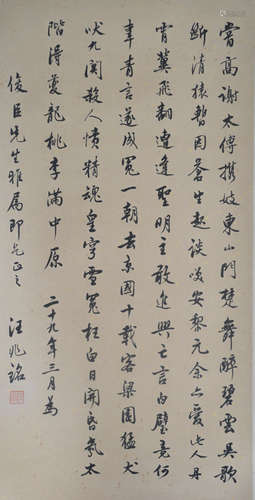 嘗高謝太傅携妓東山門楚舞醉碧雲吳歌
斷清猿暫因蒼生起談笑安黎元余亦愛此人丹
霄冀飛翻遭逢聖明主敢進興亡言白璧竟何
辜青言遂成冤一朝去京國十載客梁園猛犬
吠九關殺人憤精魂皇穹雪冤枉白日開昏氛太
階得夔龍桃李滿中原 二十九年三月為
俊臣先生雅屬即乞正之 汪兆銘